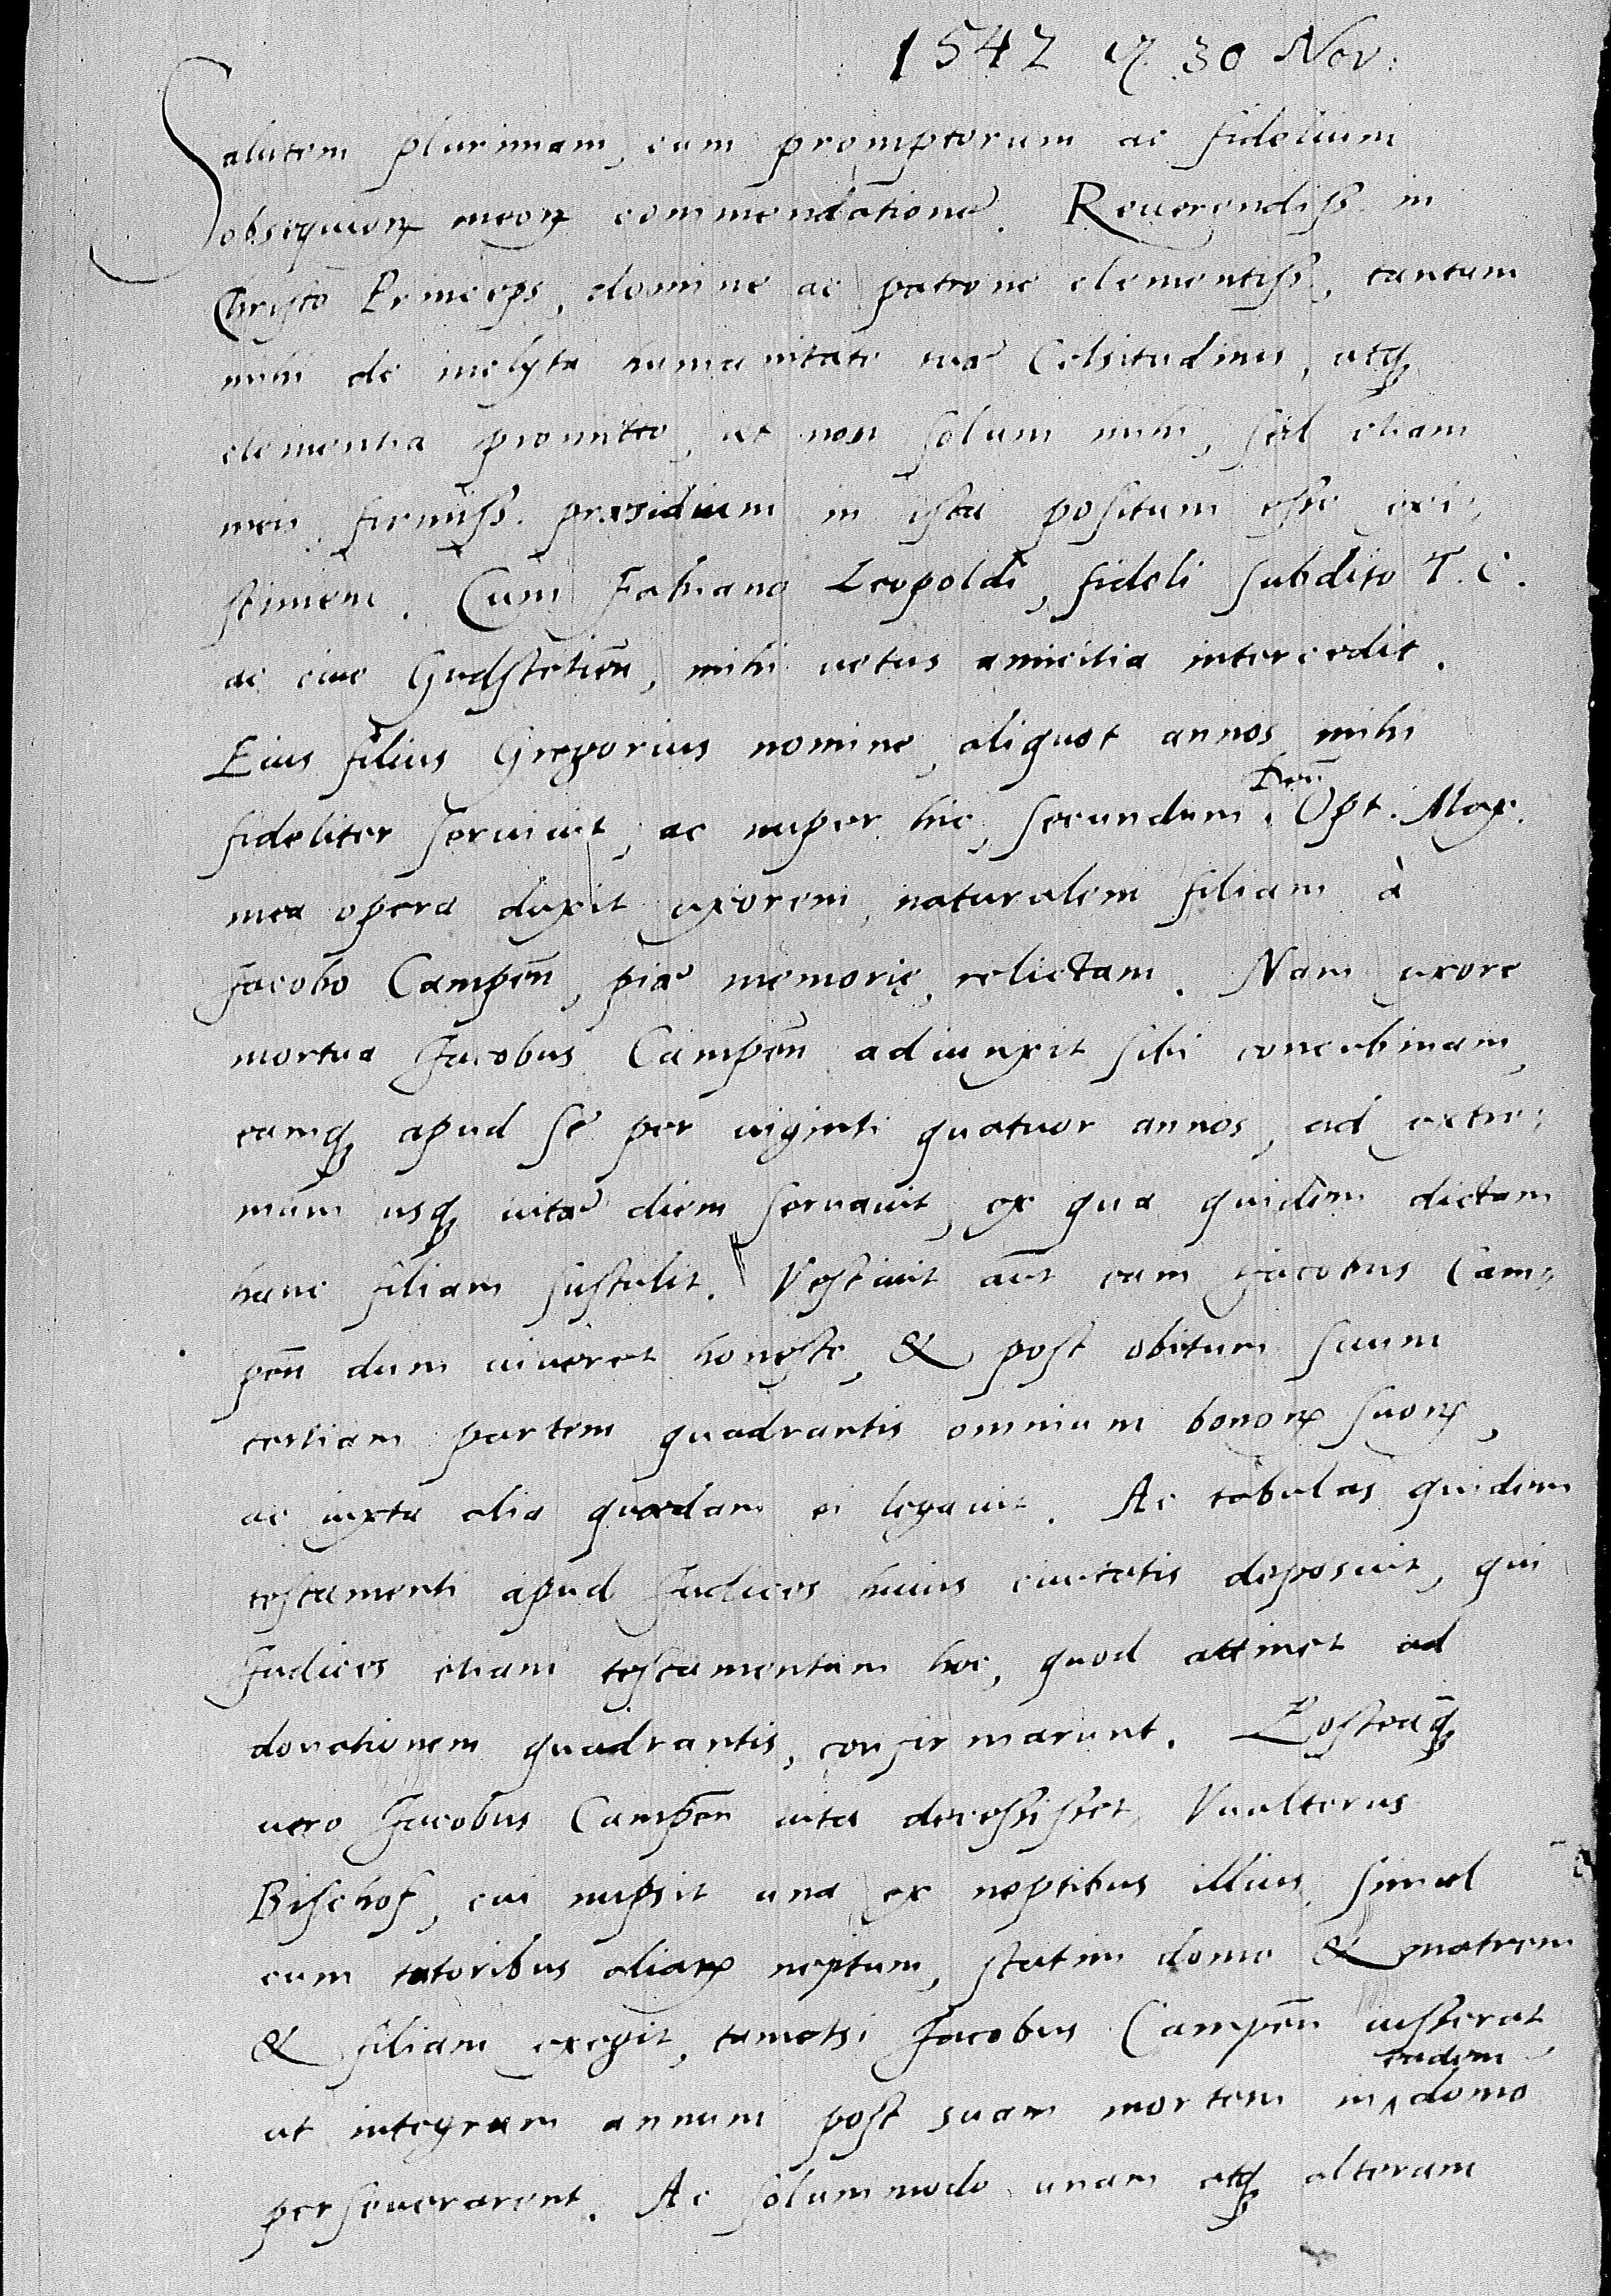 1542 30 Nov:
Salutem plurimam, cum promptorum ac fidelium
obsequiorꝝ meorꝝ commendatione. Reuerendiss. in
Christo Princeps, domine ac patrone clementiss, tantum
mihi de inclyta humanitate tuæ Celsitudinis, atqꝫ
clementia promitto, ut non solum mihi, sed etiam
meis firmiss. præsidium in ista positum esse exi-
stimem. Cum Fabiano Leopoldi, fideli subdito T. C.
ac ciue Gudstetien̄, mihi uetus amicitia intercedit.
Eius filius Gregorius nomine, aliquot annos mihi
fideliter seruiuit, ac nuper hic, secundum Deū Opt. Max.
mea opera duxit uxorem, naturalem filiam à
Jacobo Campen̄, piæ memorię, relictam. Nam uxore
mortua Jacobus Campen̄ adiunxit sibi concubinam,
eamqꝫ apud se per uiginti quatuor annos, ad extre-
mum usqꝫ uitæ diem seruauit, ex qua quidem dictam
hanc filiam sustulit. Vestiuit aūt eam Jacobus Cam-
pen̄ dum uiueret honeste, & post obitum suum
tertiam partem quadrantis omnium bonorꝝ suorꝝ,
ac iuxta alia quædam ei legauit. Ac tabulas quidem
testamenti apud Judices huius ciuitatis deposuit, qui
Judices etiam testamentum hoc, quod attinet ad
donationem quadrantis, confirmarunt. Posteaqꝫ
uero Jacobus Campen̄ uita decessisset, Vualterus
Bischof, cui nupsit una ex neptibus illius, simul
cum tutoribus aliarꝝ neptum, statim domo & matrem
& filiam exegit, tametsi Jacobus Campen̄ iusserat,
ut integrum annum post suam mortem in eadem domo
perseuerarent. Ac solummodo unam atqꝫ alteram